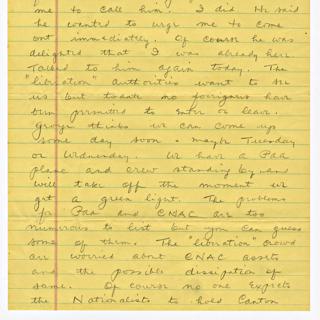 me to call him. I did. He said
he wanted to urge me to come
out immediately. Of course he was
delighted that I was already here.
Talked to him again today. The
"liberation" authorities want to see
us but to date no foreigners have
been permitted to enter or leave.
thinks we can come up
some day soon - maybe Tuesday
or Wednesday. We have a Paa
plane and crew standing by and
will take off the moment we
get a green light. The problems
for Paa and CNAC are too
numerous to list but you can guess
some of them. The "liberation" crowd
are worried about CNAC assets
and the possible dissipation of
same. Of course no one expects
the Nationalists to hold Canton